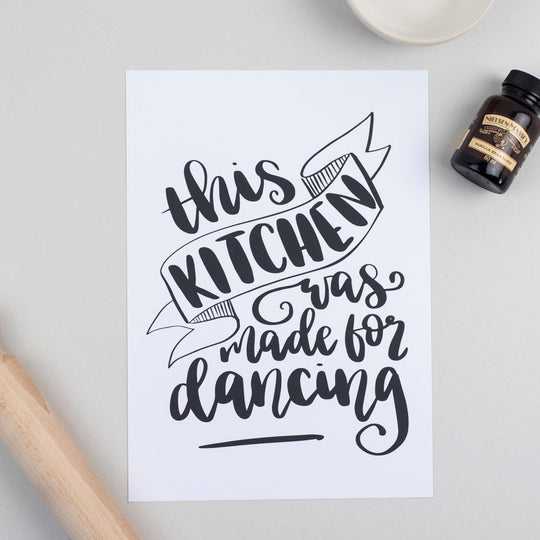 this
KITCHEN
was
made for
dancing
NIELSEN-MASSEY
VANILLA BEAN PASTE